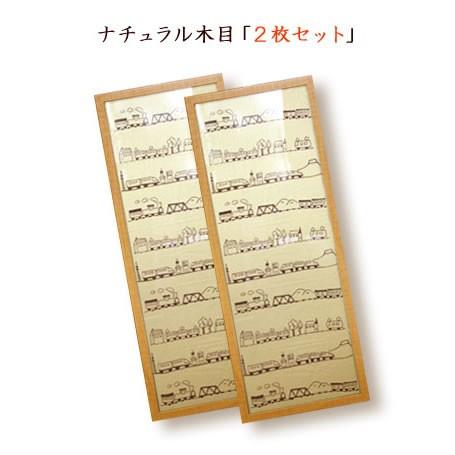 ナチュラル木目「２枚セット」